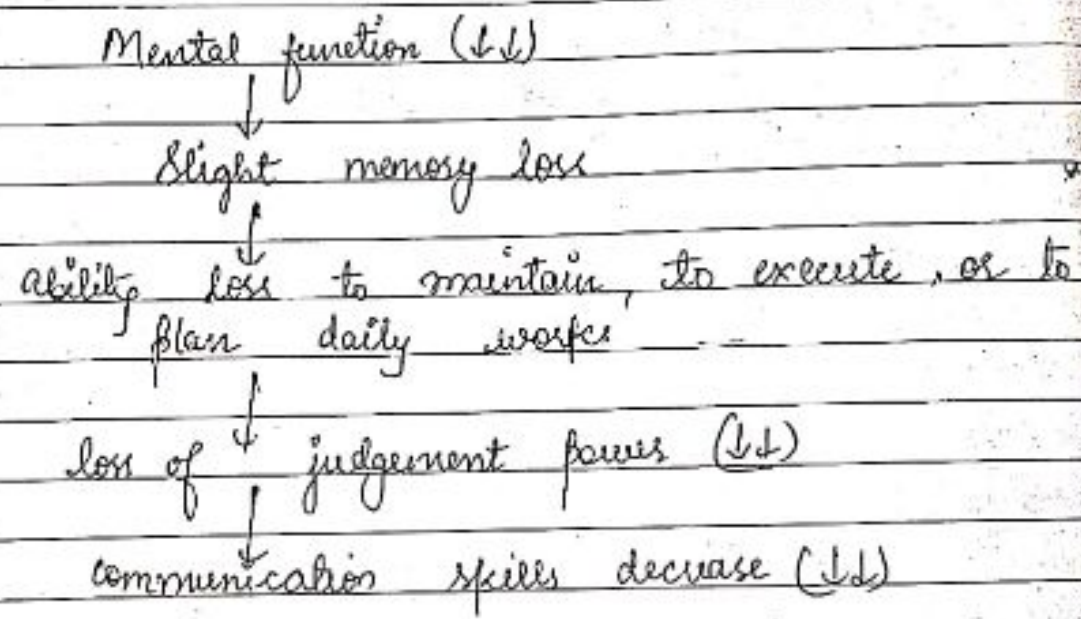 Mental function (↓↓)
↓
Slight memory loss
↓
ability loss to maintain, to execute, or to
plan daily works
↓
loss of judgement powers (↓↓)
↓
communication skills decrease (↓↓)